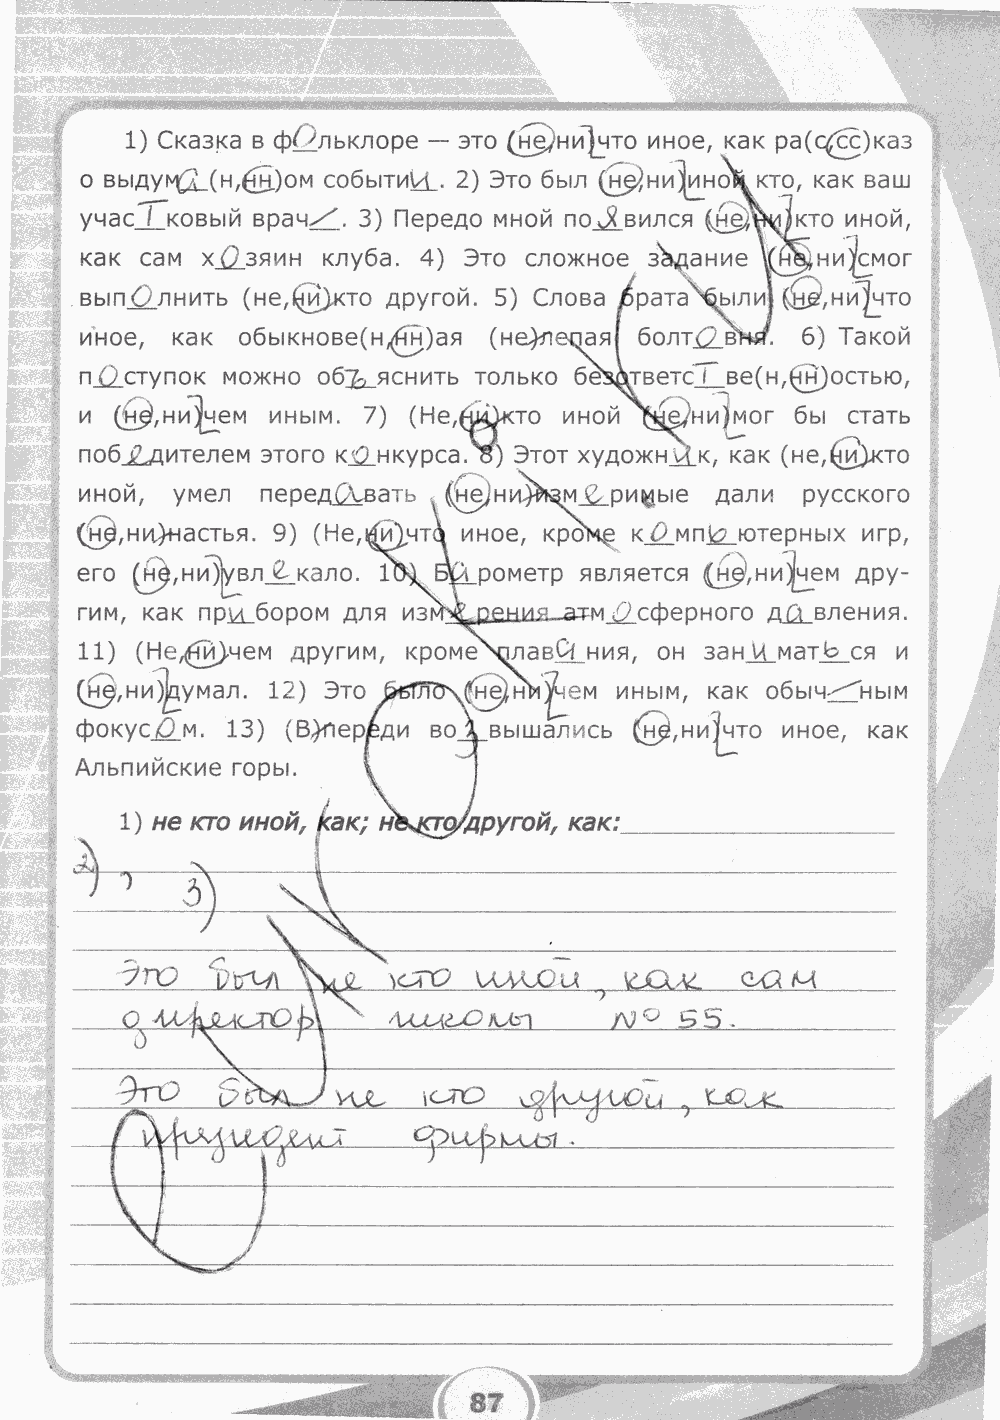 1) Сказка в фОльклоре — это (не,ни)что иное, как ра(с,сс)каз
о выдума(н,нн)ом событии. 2) Это был (не,ни)иной кто, как ваш
участковый врач_. 3) Передо мной появился (не,ни)кто иной,
как сам хозяин клуба. 4) Это сложное задание (не,ни)смог
выполнить (не,ни)кто другой. 5) Слова брата были (не,ни)что
иное, как обыкнове(н,нн)ая (не)лепая болтовня. 6) Такой
поступок можно объяснить только безответстве(н,нн)остью,
и (не,ни)чем иным. 7) (Не,ни)кто иной (не,ни)мог бы стать
победителем этого конкурса. 8) Этот художник, как (не,ни)кто
иной, умел передавать (не,ни)измеримые дали русского
(не,ни)настья. 9) (Не,ни)что иное, кроме компьютерных игр,
его (не,ни)увлекало. 10) Барометр является (не,ни)чем дру-
гим, как прибором для измерения атмосферного давления.
11) (Не,ни)чем другим, кроме плавания, он заниматься и
(не,ни)думал. 12) Это было (не,ни)чем иным, как обыч_ным
фокусом. 13) (В)переди возвышались (не,ни)что иное, как
Альпийские горы.
1) не кто иной, как; не кто другой, как:
2), 3)
Это был не кто иной, как сам
директор школы № 55.
Это был не кто другой, как
президент фирмы.
87